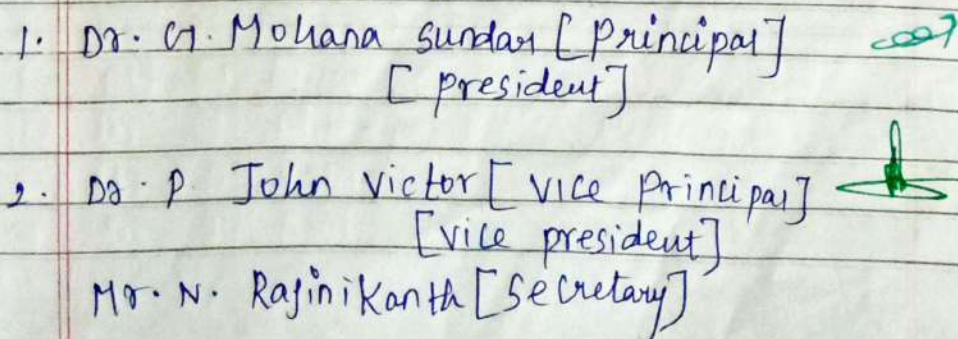 1. Dr. G. Mohana Sundar [Principal]
[president]
2. Dr. P. John victor [Vice Principal]
[vice president]
Mr. N. Rajinikanth [Secretary]